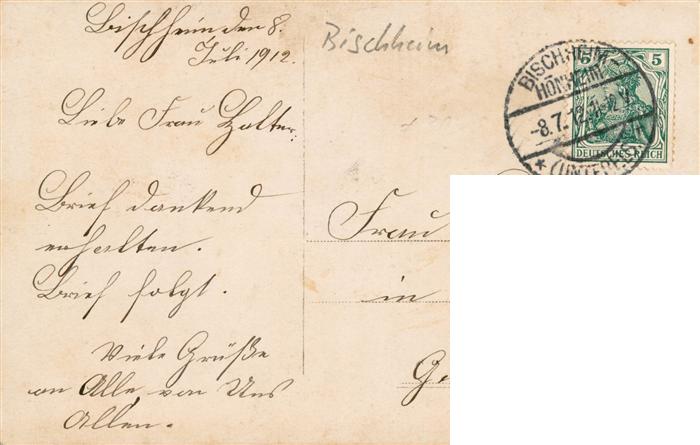 Bischheim den 8.
Juli 1912.
Liebe Frau Halter.
Brief dankend
erhalten.
Brief folgt.
Viele Grüße
an Alle von Uns
Allen.
Bischheim
BISCHHEIM-
HÖNHEIM
-8.7.12.
* (UNTER
5 5
DEUTSCHES REICH
Frau
in